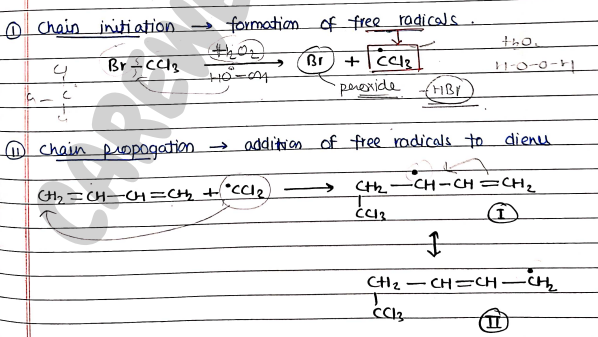 I Chain initiation → formation of free radicals.
Br – CCl3 H2O2 → Br + •CCl3
HO – OH
peroxide HBr
H2O2
H–O–O–H
Cl
Cl – C
Cl
II Chain propogation → addition of free radicals to dienes
CH2 = CH – CH = CH2 + •CCl2 → CH2 – •CH – CH = CH2
CCl3 I
↕
CH2 – CH = CH – •CH2
CCl3 II
CAREWE